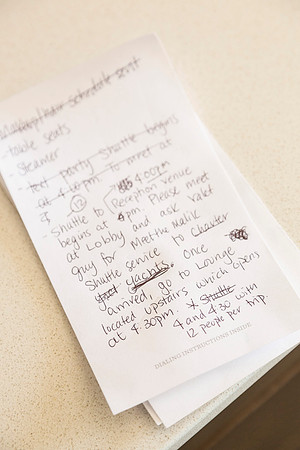 Makeup/hair schedule sent
- tape seats
- steamer
- text party shuttle begins
at 4:40pm to meet at
12
4:00pm
Shuttle to Reception venue
begins at 4pm. Please meet
at Lobby and ask valet
guy for Meethu Malik
Shuttle service to Charter
yachts. Once
arrived, go to Lounge
located upstairs which opens
at 4:30pm. * Shuttle
4 and 4:30 with
12 people per trip.
DIALING INSTRUCTIONS INSIDE